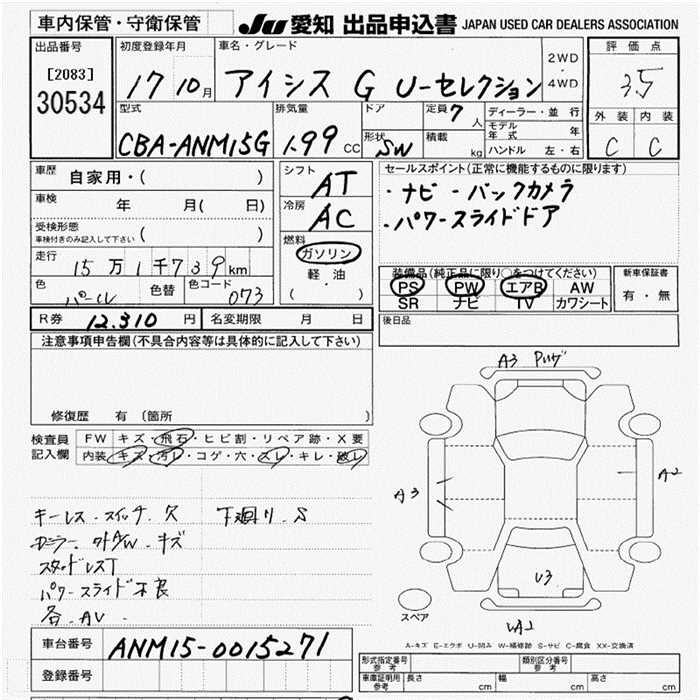 車内保管・守衛保管
JU 愛知 出品申込書 JAPAN USED CAR DEALERS ASSOCIATION
出品番号
[2083]
30534
初度登録年月
17 10月
車名・グレード
アイシス G U-セレクション
2WD
・
4WD
評価点
3.5
外装 内装
C C
型式
CBA-ANM15G
排気量
1.99 CC
ドア
形状
SW
定員 7人
積載 kg
ディーラー・並行
モデル年式 年
ハンドル 左・右
車歴
自家用・( )
車検
年 月( 日)
受検形態
車検付きのみ記入して下さい ( )
走行
15万1千739km
色
パール
色替
色コード
073
シフト
AT
冷房
AC
燃料
ガソリン
軽・油
( )
セールスポイント(正常に機能するものに限ります)
・ナビ・バックカメラ
・パワースライドドア
装備品(純正品に限り○をつけてください)
PS PW エアB AW
SR ナビ TV カワシート
新車保証書
有・無
後日品
R券 12,310 円
名変期限 月 日
注意事項申告欄(不具合内容等は具体的に記入して下さい)
修復歴 有(箇所 )
検査員
記入欄
FW キズ・飛石・ヒビ割・リペア跡・X要
内装 キズ・汚レ・コゲ・穴・スレ・キレ・破レ
キーレス・スイッチ欠 下廻り・S
ミラー・外AW・キズ
スタッドレスT
パワースライド不良
各・AU・
A3
A3
A2
U3
UA2
スペア
A-キズ E-エクボ U-凹み W-補修跡 S-サビ C-腐食 XX-交換済
車台番号
ANM15-0015271
登録番号
形式指定番号
参考
類別区分番号
参考
車庫証明用
参考
長さ cm
幅 cm
高さ cm